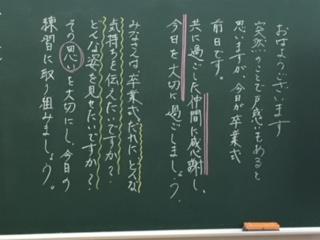 おはようございます
突然のことで戸惑いもあると
思いますが、今日が卒業式
前日です。
共に過ごした仲間に感謝し、
今日を大切に過ごしましょう。
みなさんは卒業式、だれに、どんな
気持ちを伝えたいですか？
どんな姿を見せたいですか？
その思いを大切にし、今日の
練習に取り組みましょう。